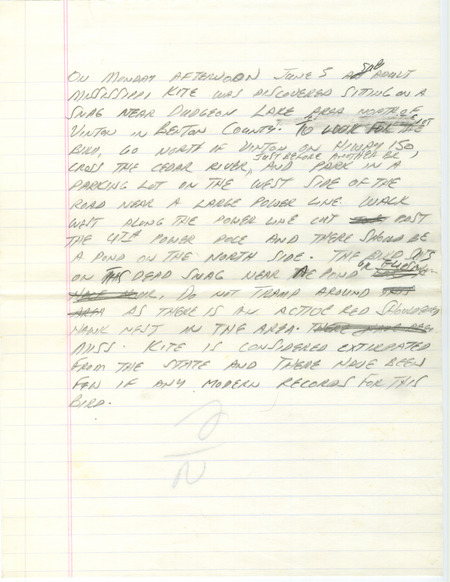 ON MONDAY AFTERNOON JUNE 5 A SUB ADULT
MISSISSIPPI KITE WAS DISCOVERED SITTING ON A
SNAG NEAR DUDGEON LAKE AREA NORTH OF
VINTON IN BENTON COUNTY. TO LOOK FOR THE
BIRD, GO NORTH OF VINTON ON HIWAY 150,
CROSS THE CEDAR RIVER, JUST BEFORE ANOTHER BR, AND PARK IN A
PARKING LOT ON THE WEST SIDE OF THE
ROAD NEAR A LARGE POWER LINE. WALK
WEST ALONG THE POWER LINE CUT PAST
THE 4TH POWER POLE AND THERE SHOULD BE
A POND ON THE NORTH SIDE. THE BIRD SITS
ON THIS DEAD SNAG NEAR THE POND OR
DO NOT TRAMP AROUND
AS THERE IS AN ACTIVE RED SHOULDERED
HAWK NEST IN THE AREA.
MISS. KITE IS CONSIDERED EXTIRPATED
FROM THE STATE AND THERE HAVE BEEN
FEW IF ANY MODERN RECORDS FOR THIS
BIRD.